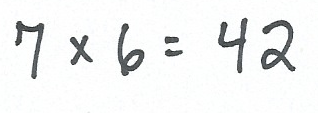 7 × 6 = 42